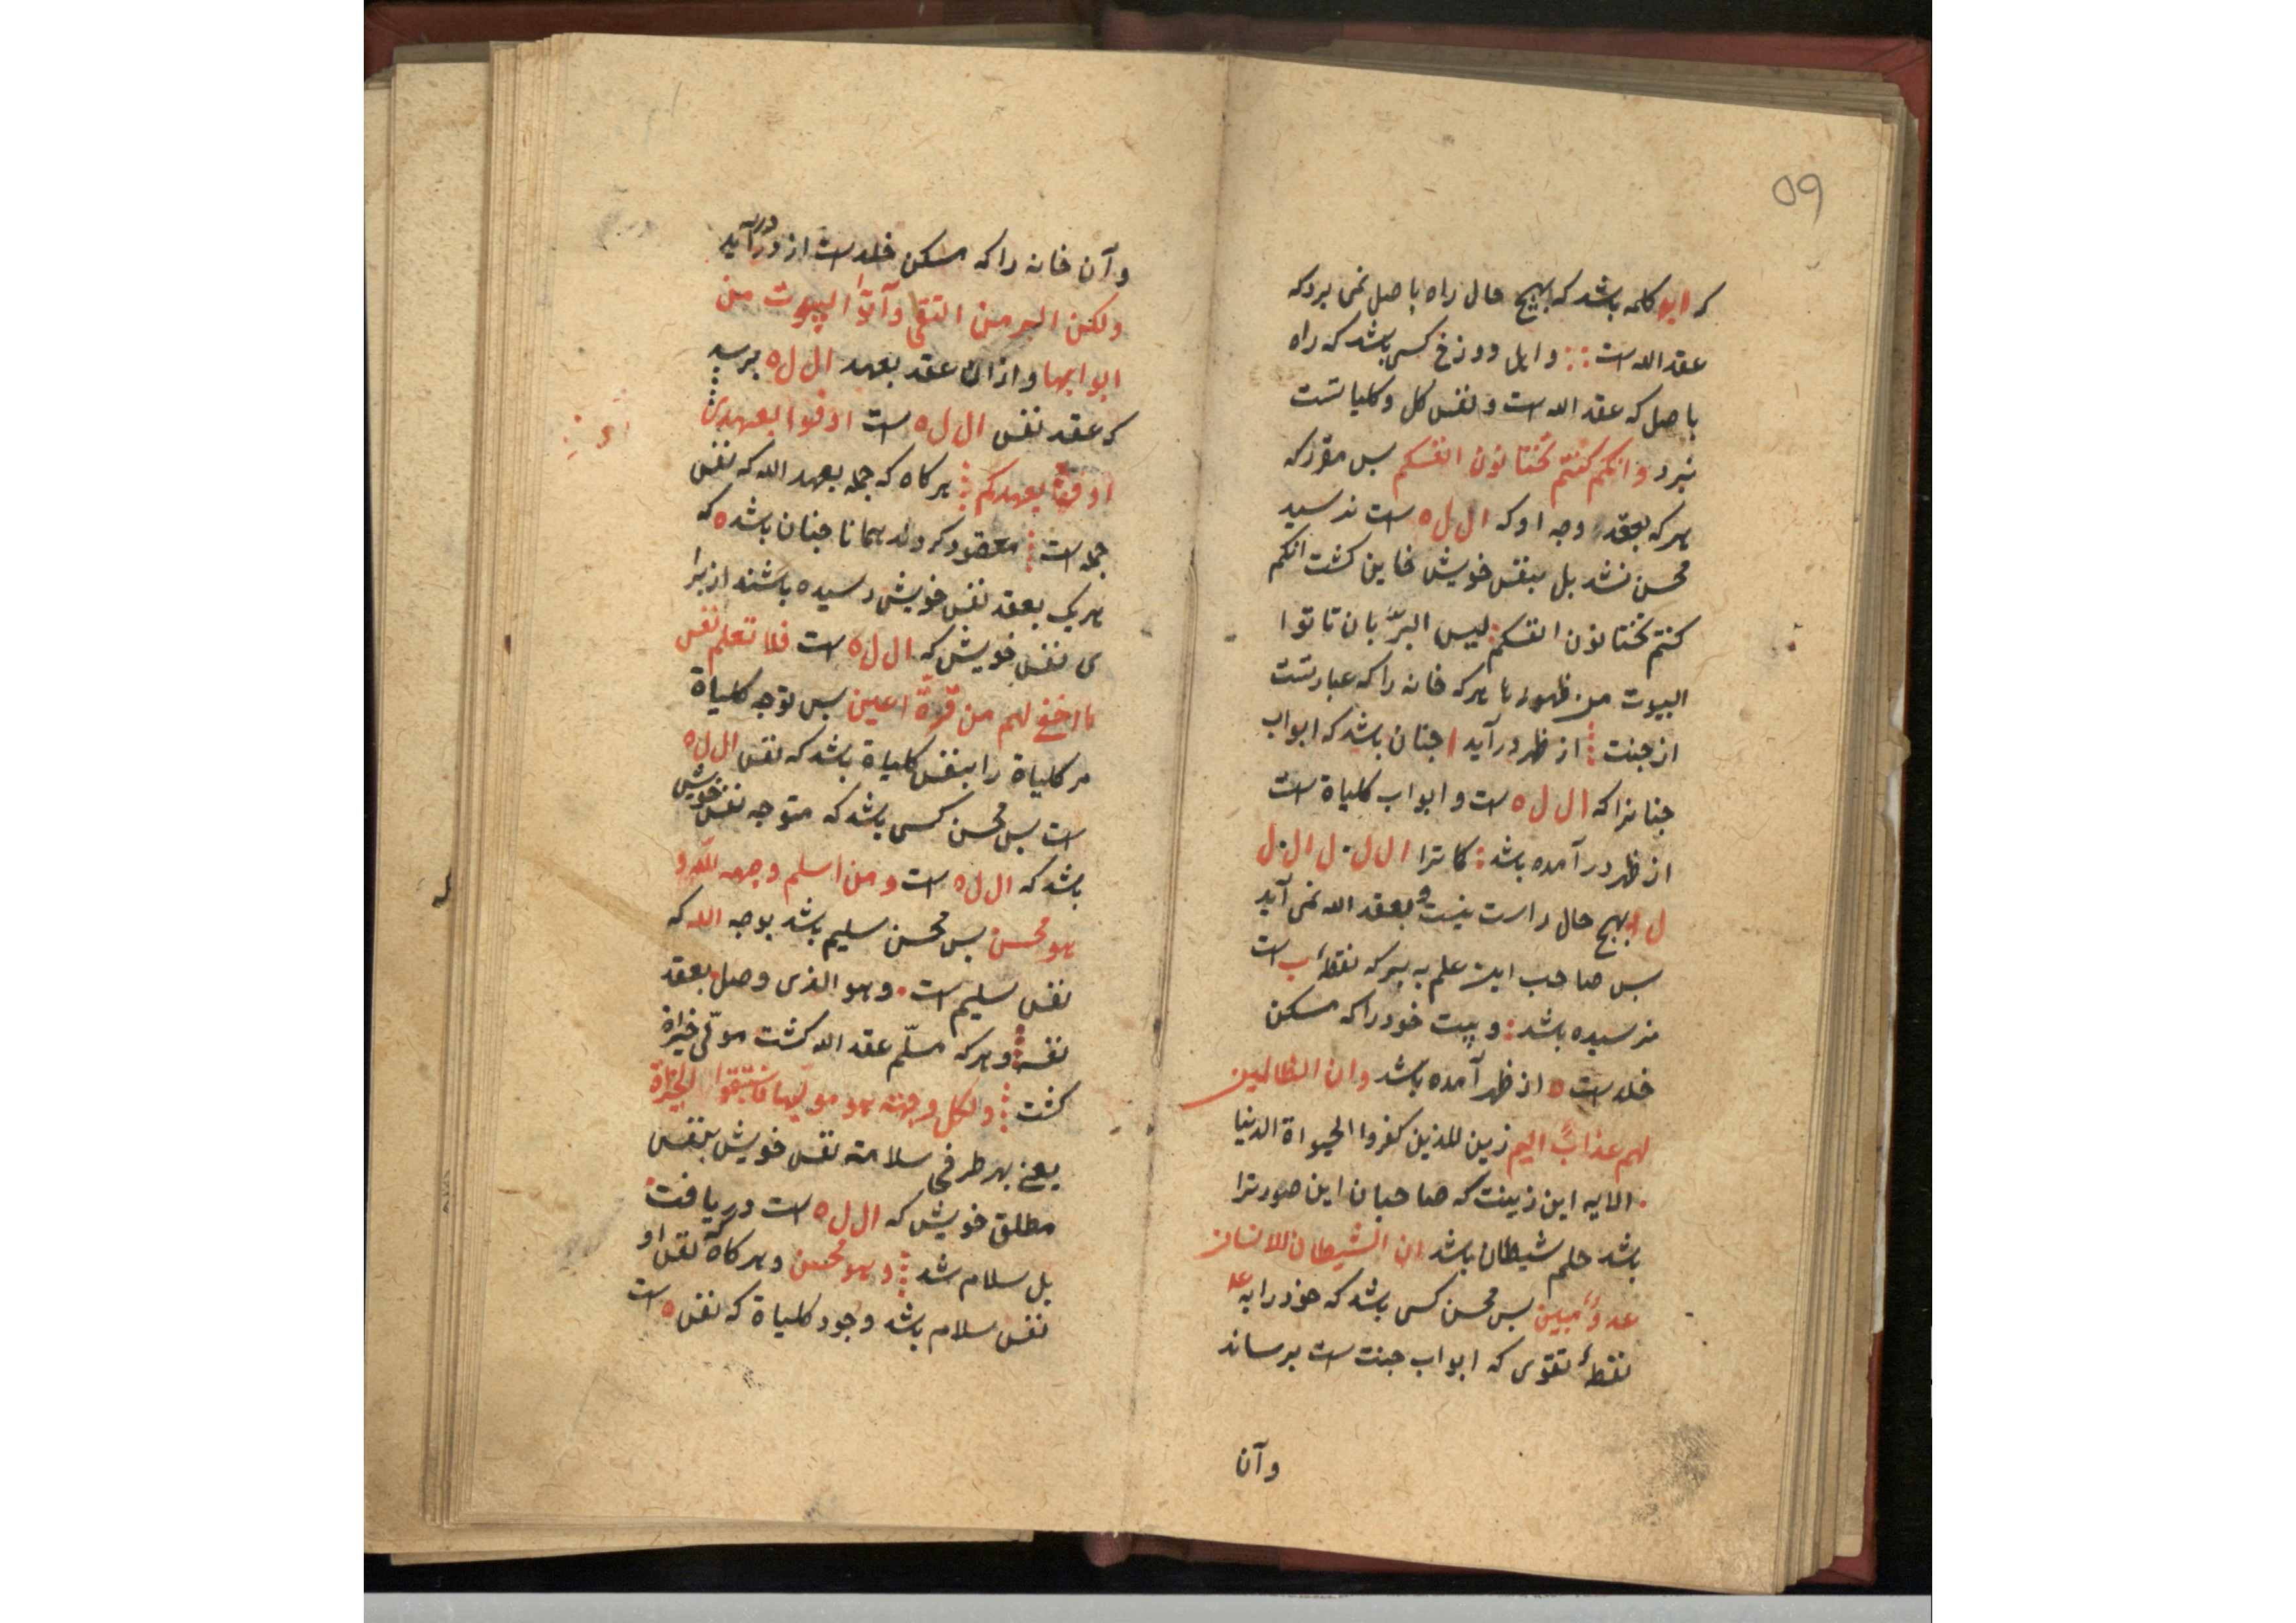 ۵۹
که ابو کلمه باشد که بهیچ حال راه باصل نمی برد که
عقد الله است وایل دوزخ کسی باشد که راه
باصل که عقد الله است و نفس کل و کلیاتست
نبرد وانکم کنتم تختانون انفسکم بس مقرر که
هرکه بعقد وجه او که ال ل ه است نرسید
محسن نشد بل بنفس خویش خاین کشت انکم
کنتم تختانون انفسکم لیس البرّ بان تاتوا
البیوت من ظهورها هرکه خانه را که عبارتست
از جنت از ظهر درآید جنان باشد که ابواب
جنانرا که ال ل ه است و ابواب کلیاة است
از ظهر درآمده باشد ال ل ل ال ل
ل بهیچ حال راست نیست و بعقد الله نمی آید
بس صاحب این علم به سر که نقطهٔ ب است
نرسیده باشد و بیت خود را که مسکن
خلد است ه از ظهر آمده باشد وان الظالمین
لهم عذابً الیم زین للذین کفروا الحیواة الدنیا
الایه این زینت که صاحبان این صورترا
باشد حلم شیطان باشد ان الشیطان للانسان
عدوٌ مبین بس محسن کسی باشد که خود را به
نقطهٔ تقوی که ابواب جنت است برساند
وآن
وآن خانه را که مسکن خلد است از در درآید
ولکن البر من التقی وآتوا البیوت من
ابوابها و ازان عقد بعهد ال ل ه برسد
که عقد نفس ال ل ه است اوفوا بعهدی
اوف بعهدکم هرکاه که جمله بعهد الله که نفس
جمله است معقود کردند همانا جنان باشد ه که
هر یک بعقد نفس خویش رسیده باشند از برا
ی نفس خویش که ال ل ه است فلا تعلم نفس
ما اخفی لهم من قرّة اعین بس توجه کلیاة
مر کلیاة را بنفس کلیاة باشد که نفس ال ل ه
است بس محسن کسی باشد که متوجه نفس خویش
باشد که ال ل ه است ومن اسلم وجهه للّه و
هو محسن بس محسن سلیم باشد بوجه الله که
نفس سلیم است وهو الذی وصل بعقد
نفسه و هرکه مسلّم عقد الله کشت مولّی خیراة
کشت ولکل وجهة هو مولیها فاستبقوا الخیراة
یعنی بهر طرفی سلامة نفس خویش بنفس
مطلق خویش که ال ل ه است دریافت
بل سلام شد وهو محسن و هرکاه که نفس او
نفس سلام باشد وجود کلیاة که نفس ه است